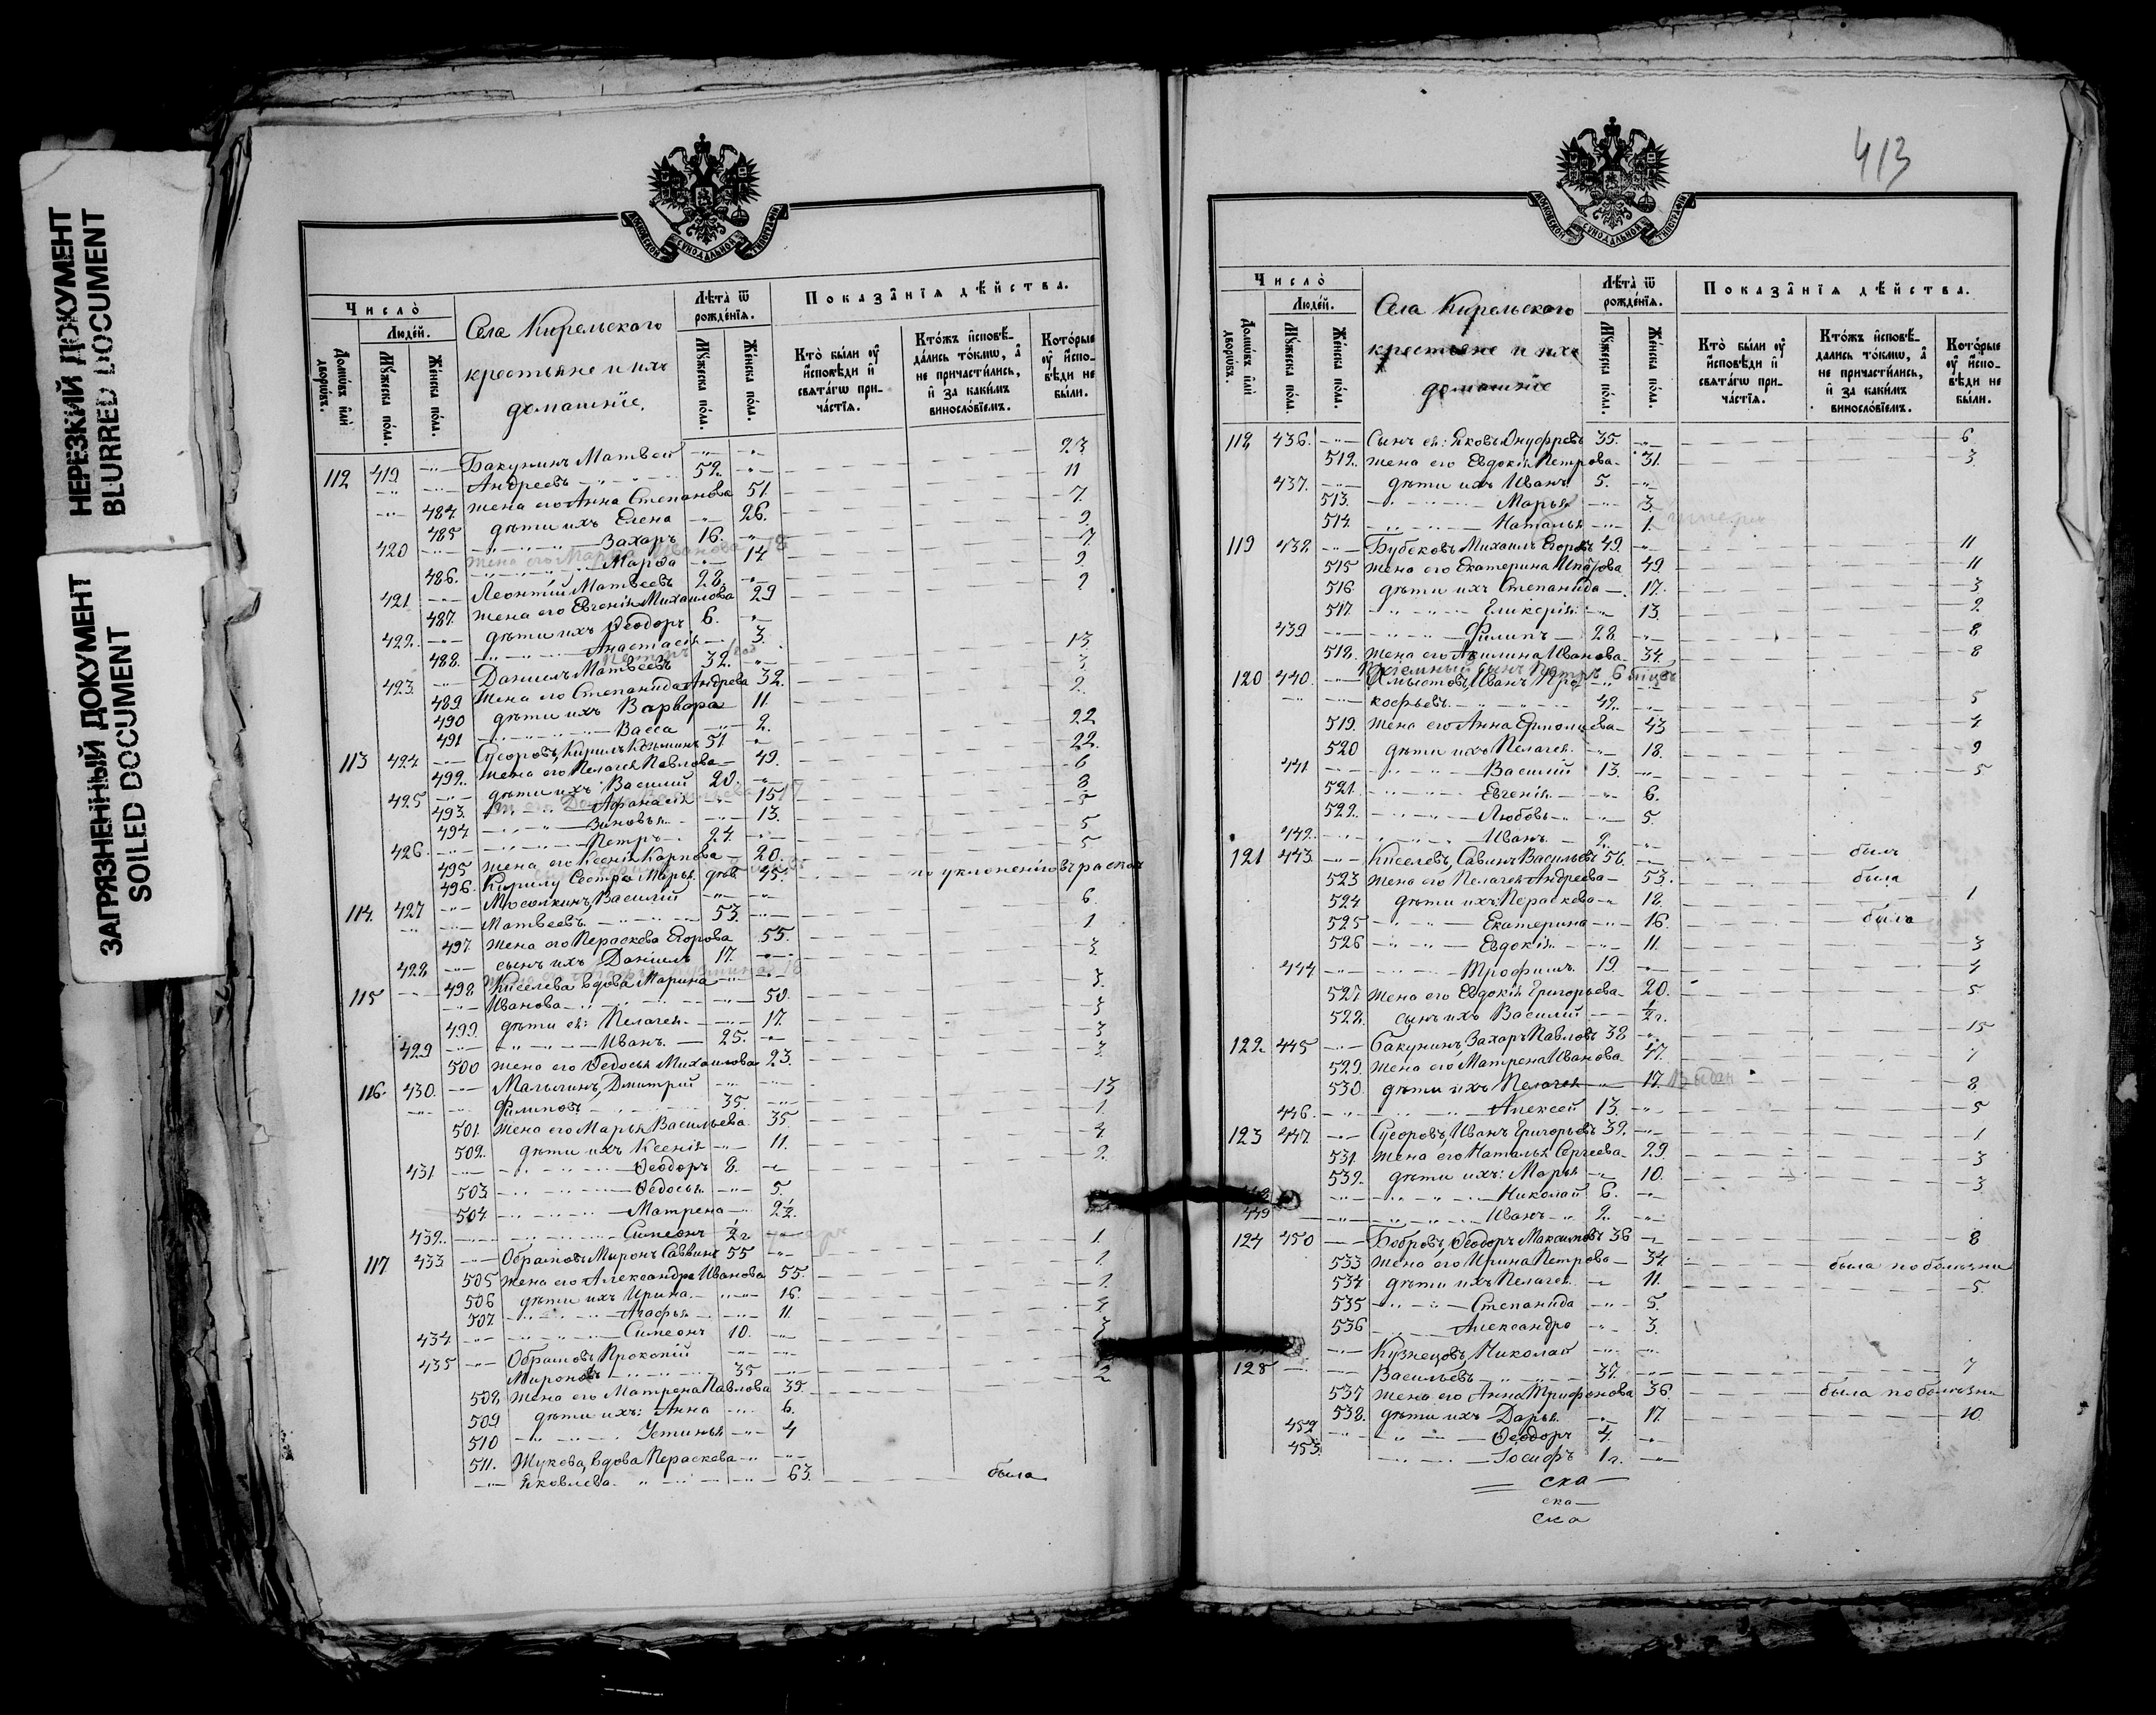 НЕРЕЗКИЙ ДОКУМЕНТ
BLURRED DOCUMENT
ЗАГРЯЗНЕННЫЙ ДОКУМЕНТ
SOILED DOCUMENT
МОСКОВСКОЙ СУНОДАЛЬНОЙ ТИПОГРАФІИ
Число̀
Людей.
Домѡвъ или дворѡвъ.
Мꙋжеска пола.
Женска пола.
Села Кирельскаго
крестьяне и ихъ
домашніе.
Лѣта ѿ рожденїѧ.
Мꙋжеска пола.
Женска пола.
Показанїѧ дѣйства.
Кто были ѹ исповѣди и свѧтагѡ причастїѧ.
Ктожъ исповѣдались токмѡ, а не причастились, и за какимъ винословїемъ.
Которые ѹ исповѣди не были.
112 419 Бакунинъ Матвей 23
Андреевъ 52. 11
484. жена его Анна Степанова 51. 7
485 дѣти ихъ Елена 26. 9
420 Захаръ 16. 7
486. Марѳа 14 9
421 Леонтій Матвеевъ 28. 2
487. жена его Евгенія Михаилова 29
422. дѣти ихъ Ѳеодоръ 6.
488. Анастасія 3. 13
423. Даніилъ Матвеевъ 32. 3
489. жена его Степанида Андреева 32. 2.
490 дѣти ихъ Варвара 11.
491 Васса 2. 22
113 424 Сусоровъ, Кирилъ Козьминъ 51 22.
492. жена его Пелагея Павлова 49. 6
425 дѣти ихъ: Василий 20. 8
493. Афанасія 15 5
494. Зиновья 13. 5
426. Петръ 24. 5
495 жена его Ксенія Карпова 20.
496. Кирилу сестра Марья, дѣв. 45. по уклоненію въ расколъ
114. 427 Мосолкинъ, Василий
Матвеевъ 53. 6
497 жена его Параскева Егорова 55. 1
428 сынъ ихъ Даніилъ 17. 3
115 498 Киселева вдова Марина
Иванова 50. 3
499. дѣти ея: Пелагея 17. 3
429 Иванъ 25. 3
500 жена его Ѳедосья Михаилова 23. 3
116. 430. Малыгинъ, Дмитрий
Филиповъ 35. 13
501. жена его Марья Васильева 35. 1
502. дѣти ихъ Ксенія 11. 4
431 Ѳеодоръ 8. 2
503. Ѳедосья 5.
504. Матрена 2½.
432. Симеонъ ½ г
117 433 Обрамовъ Миронъ Саввинъ 55 1
505 жена его Александра Иванова 55. 1
506 дѣти ихъ Ирина 16. 1
507 Агафья 11. 4
434 Симеонъ 10. 3
435 Обрамовъ Прокопій
Мироновъ 35 2
508. жена его Матрена Павлова 35.
509 дѣти ихъ: Анна 6.
510 Устинья 4
511. Жукова, вдова Параскева
Яковлева 63. была
413
МОСКОВСКОЙ СУНОДАЛЬНОЙ ТИПОГРАФІИ
Число̀
Людей.
Домѡвъ или дворѡвъ.
Мꙋжеска пола.
Женска пола.
Села Кирельскаго
крестьяне и ихъ
домашніе
Лѣта ѿ рожденїѧ.
Мꙋжеска пола.
Женска пола.
Показанїѧ дѣйства.
Кто были ѹ исповѣди и свѧтагѡ причастїѧ.
Ктожъ исповѣдались токмѡ, а не причастились, и за какимъ винословїемъ.
Которые ѹ исповѣди не были.
118 436. Сынъ ея: Яковъ Онуфревъ 35. 6
512. жена его Евдокія Петрова 31. 3
437. дѣти ихъ Иванъ 5.
513. Марья 3.
514. Наталья 1.
119 438 Бубековъ Михаилъ Егоровъ 49. 11
515 жена его Екатерина 49. 11
516. дѣти ихъ Степанида 17. 3
517. Гликерія 13. 2.
439 Филипъ 28. 8
518. жена его Акилина Иванова 34. 8
Пріемный сынъ Петръ 6
120 440. Иванъ Про
кофьевъ 42. 5
519. жена его Анна Ермолаева 43 4
520 дѣти ихъ Пелагея 18. 9
441 Василий 13. 5
521. Евгенія 6.
522. Любовь 5.
442. Иванъ 2.
121 443. Киселевъ, Савинъ Васильевъ 56. былъ
523 жена его Пелагея Андреева 53. была
524 дѣти ихъ: Параскева 18. 1
525 Екатерина 16. была
526 Евдокія 11. 3
444 Трофимъ 19. 4
527 жена его Евдокія Григорьева 20. 5
528. сынъ ихъ Василий ½ г.
122 445 Бакунинъ Захаръ Павловъ 38 15
529. жена его Матрена Иванова 47. 7
530. дѣти ихъ Пелагея 17. 8
446. Алексей 13. 5
123 447 Сусоровъ, Иванъ Григорьевъ 32. 1
531. жена его Наталья Сергеева 29. 3
532. дѣти ихъ: Марья 10. 3
Николай 6.
449 Иванъ 2.
124 450 Бобровъ, Ѳеодоръ Максимовъ 36 8
533 жена его Ирина Петрова 34. была по болезни
534 дѣти ихъ Пелагея 11. 5.
535 Степанида 5.
536 Александра 3.
Кузнецовъ, Николай
125 Васильевъ 37. 7
537 жена его Анна Трифонова 36. была по болезни
538. дѣти ихъ Дарья 17. 10
452 Ѳеодоръ 4.
453. Іосифъ 1 г.
ска
ска
ска